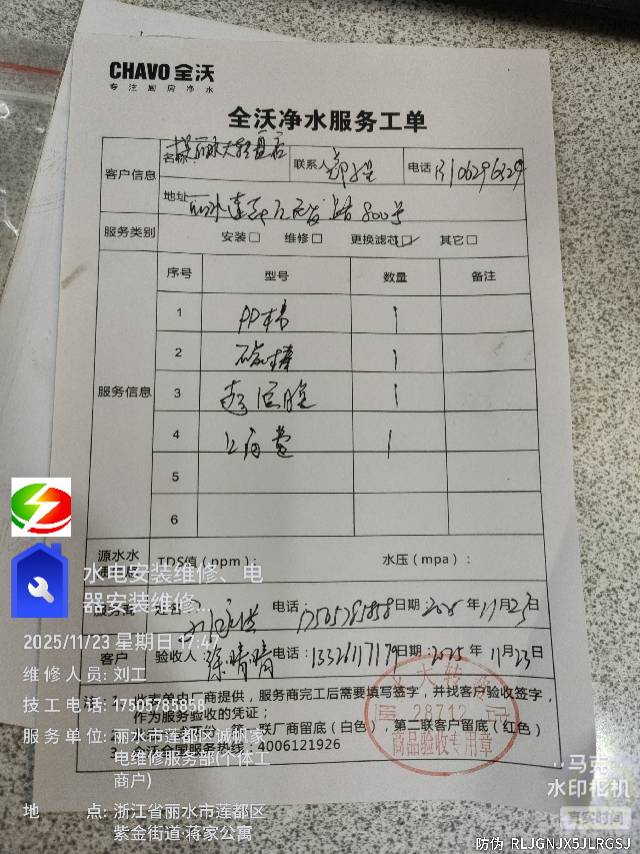 CHAVO 全沃
专注厨房净水
全沃净水服务工单
客户信息
名称
联系人
电话 13106296329
地址
服务类别 安装□ 维修□ 更换滤芯☑ 其它□
服务信息
序号 型号 数量 备注
1 PP棉 1
2 碳棒 1
3 1
4 上门费 1
5
6
源水水
TDS值（ppm）： 水压（mpa）：
电话 17505785858 日期：2025年11月23日
客户 验收人 徐晴晴 电话：13326117179 日期：2025年11月23日
注：1、此表单由厂商提供，服务商完工后需要填写签字，并找客户验收签字，
作为服务验收的凭证；
联厂商留底（白色），第二联客户留底（红色）
3、全沃全国服务热线：4006121926
28712
商品验收专用章
水电安装维修、电
器安装维修...
2025/11/23 星期日 17:47
维修人员：刘工
技工电话：17505785858
服务单位：丽水市莲都区诚帆家
电维修服务部(个体工
商户)
地点：浙江省丽水市莲都区
紫金街道·蒋家公寓
马克
水印相机
真实时间
防伪 RLJGNJX5JLRGSJ